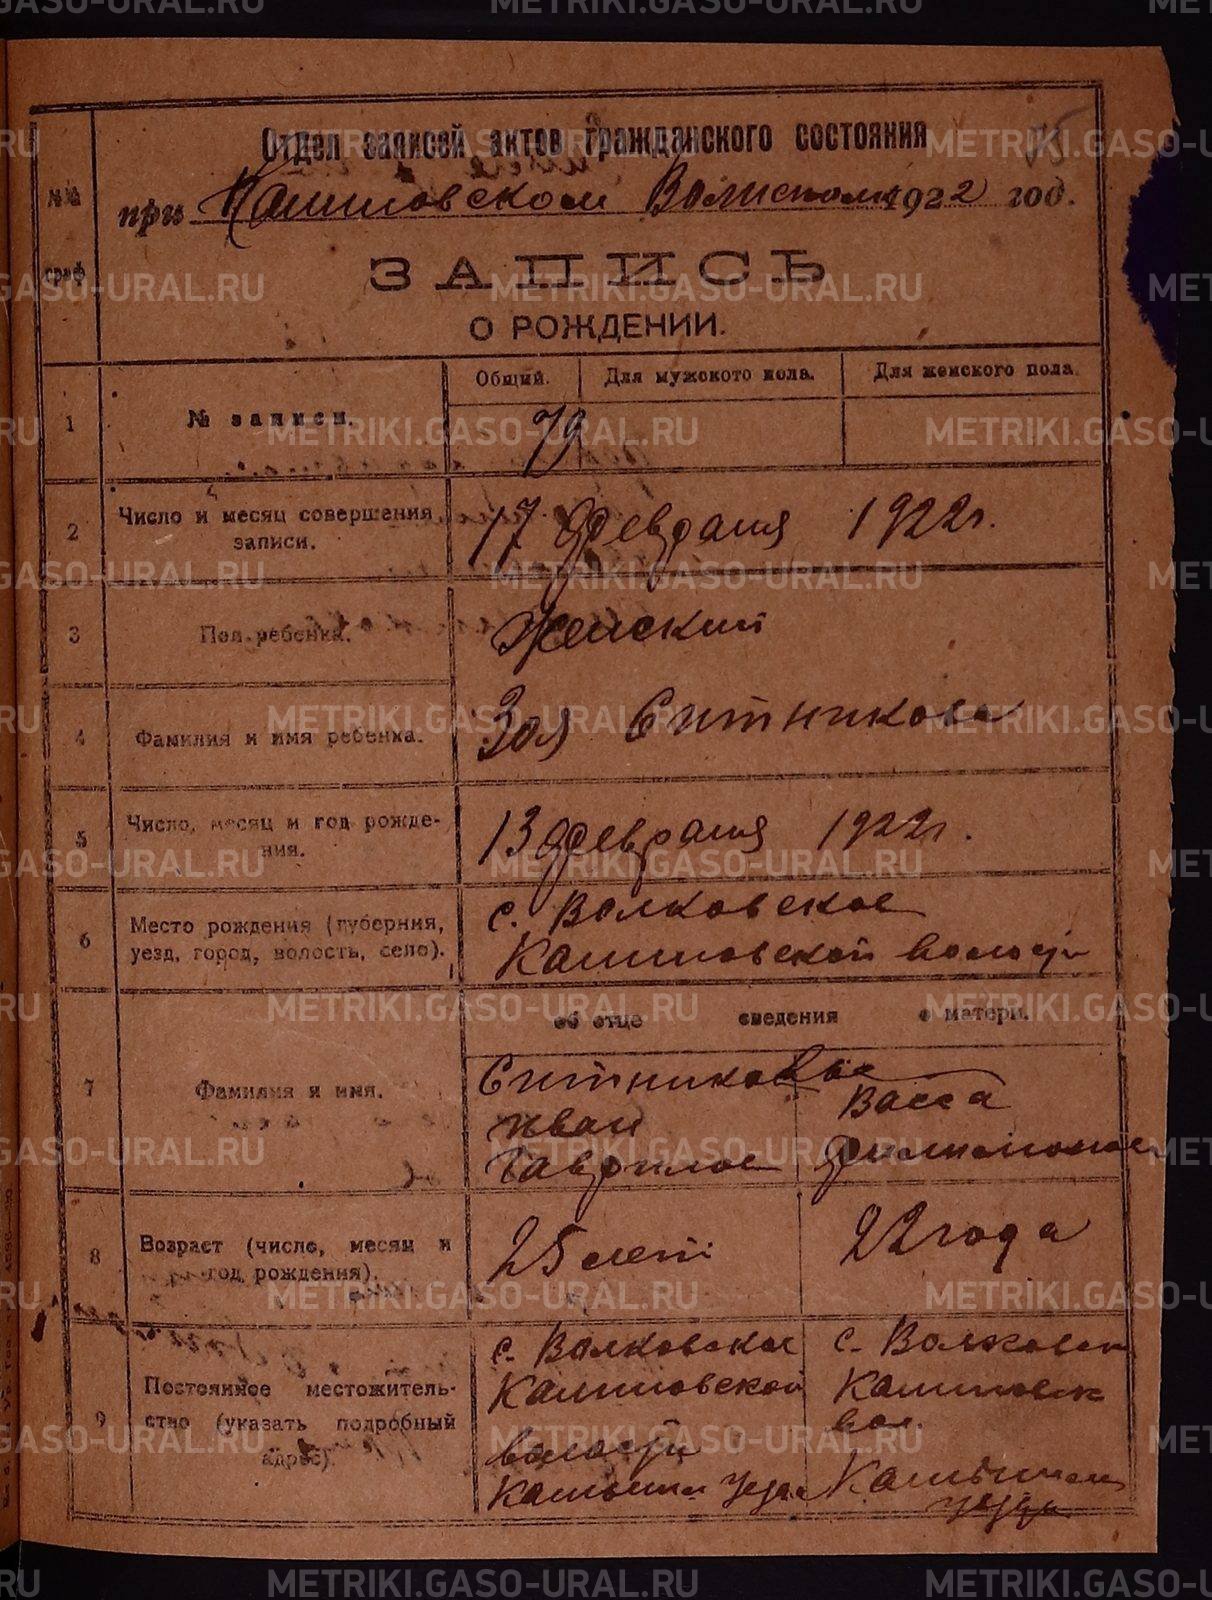 METRIKI.GASO-URAL.RU
Отдел записей актов гражданского состояния
при Калиновском Волисполк. 1922 год.
№№ граф
ЗАПИСЬ
О РОЖДЕНИИ.
Общий. Для мужского пола. Для женского пола.
1 № записи. 79
2 Число и месяц совершения записи. 17 Февраля 1922 г.
3 Пол ребенка. Женский
4 Фамилия и имя ребенка. Зоя Ситникова
5 Число, месяц и год рождения. 13 Февраля 1922 г.
6 Место рождения (губерния, уезд, город, волость, село). с. Волковское
Калиновской волости
об отце сведения о матери.
7 Фамилия и имя. Ситниковы
Иван Васса
Гаврилов Филимонов
8 Возраст (число, месяц и год рождения). 25 лет 22 года
с. Волковское с. Волковск
9 Постоянное местожительство (указать подробный адрес). Калиновской Калиновск
волости вол.
Камышл уезда Камышлов
уезда